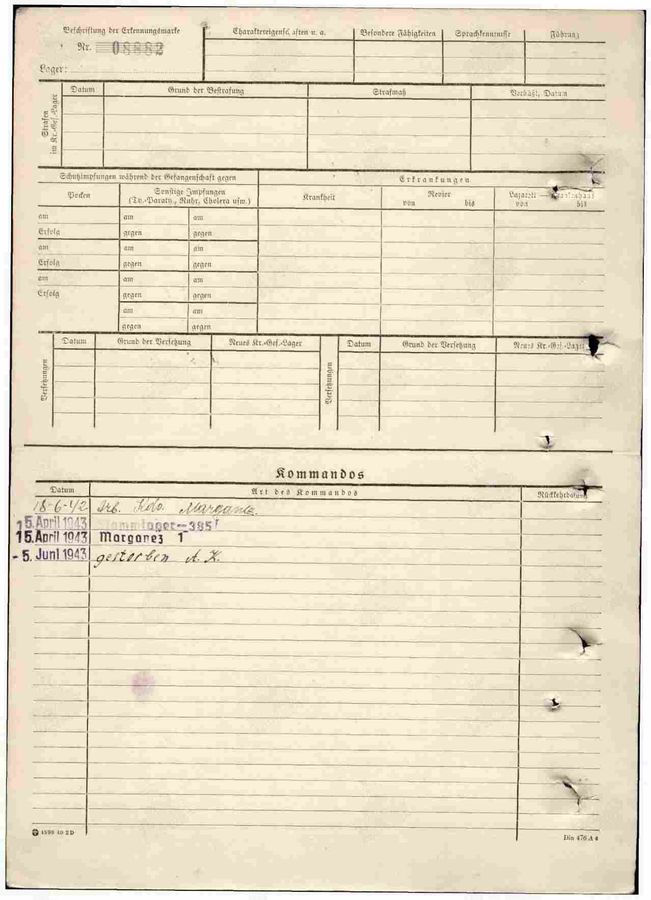 Beschriftung der Erkennungsmarke
Nr. 08882
Lager:
Charaktereigensch aften u. a.
Besondere Fähigkeiten
Sprachkenntnisse
Führung
Strafen im Kr.-Gef.-Lager
Datum
Grund der Bestrafung
Strafmaß
Verbüßt, Datum
Schutzimpfungen während der Gefangenschaft gegen
Erkrankungen
Pocken
Sonstige Impfungen
(Ty.-Paraty., Ruhr, Cholera usw.)
Krankheit
Revier
von bis
Lazarett — Krankenhaus
von bis
am am am
Erfolg gegen gegen
am am am
Erfolg gegen gegen
am am am
Erfolg gegen gegen
am am
gegen gegen
Versetzungen
Datum
Grund der Versetzung
Neues Kr.-Gef.-Lager
Versetzungen
Datum
Grund der Versetzung
Neues Kr.-Gef.-Lager
Kommandos
Datum
Art des Kommandos
Rückkehrdatum
18-6-42 Arb. Kdo. Marganez.
15. April 1943 Stammlager-385
15. April 1943 Marganez 1
- 5. Juni 1943 gestorben A. K.
4599 40 2 D
Din 476 A 4